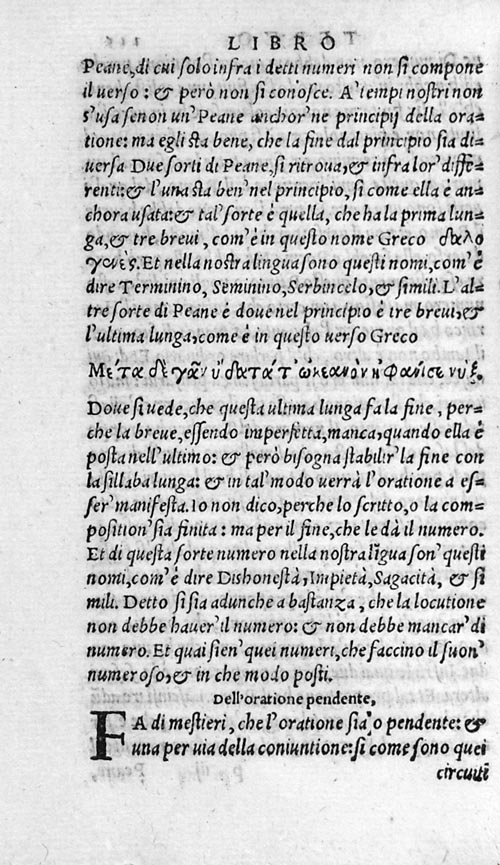 LIBRO
Peane, di cui solo infra i detti numeri non si compone
il verso: & però non si conosce. A' tempi nostri non
s'usa senon un' Peane anchor'ne principij della ora=
tione: ma egli sta bene, che la fine dal principio sia di=
uersa Due sorti di Peane, si ritroua, & infra lor' diffe=
renti: & l'una sta ben' nel principio, si come ella è an=
chora usata: & tal' sorte è quella, che ha la prima lun=
ga, & tre breui, com'è in questo nome Greco δαλο
γενες. Et nella nostra lingua sono questi nomi, com'è
dire Terminino, Seminino, Serbincelo, & simili. L'al=
tre sorte di Peane è doue nel principio è tre breui, &
l'ultima lunga, come è in questo verso Greco
Μετα δε γᾶν υδατα τ ωκεανον ηφανισε νυξ.
Doue si vede, che questa ultima lunga fa la fine, per=
che la breue, essendo imperfetta, manca, quando ella è
posta nell'ultimo: & però bisogna stabilir' la fine con
la sillaba lunga: & in tal' modo uerrà l'oratione a es=
ser' manifesta. Io non dico, perche lo scritto, o la com=
position' sia finita: ma per il fine, che le dà il numero.
Et di questa sorte numero nella nostra lĩgua son' questi
nomi, com'è dire Dishonestà, Impietà, Sagacità, & si
mili. Detto si sia adunche a bastanza, che la locutione
non debbe hauer' il numero: & non debbe mancar' di
numero. Et quai sien' quei numeri, che faccino il suon'
numeroso, & in che modo posti.
Dell'oratione pendente,
FA di mestieri, che l'oratione sia, o pendente: &
una per uia della coniuntione: si come sono quei
circuiti